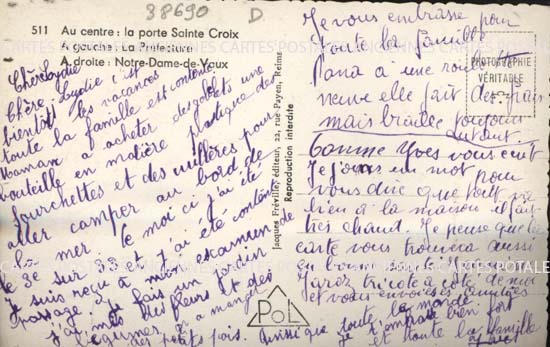 38690 D.
511 Au centre : la porte Sainte Croix
A gauche : La Préfecture
A droite : Notre-Dame-de-Vaux
Chère Lydie
Chère Lydie c'est
bientôt les vacances
toute la famille est contente
Maman a acheter des gobelets une
bouteille en matière plastique des
fourchettes et des cuillères pour
aller camper au bord de
la mer. Le moi ci j'ai été
le 3e sur 33 et j'ai été content
Je suis reçu à mon examen de
passage. Je fais un jardin
j'ai mis des fleurs et des
légumes. On a mangé
des petits pois. Ainsi que toute la
Jacques Fréville, éditeur, 22, rue Payen, Reims
Reproduction interdite
PoL
PHOTOGRAPHIE
VÉRITABLE
Je vous embrasse pour
toute la famille
Pana à une
neuve elle fait des
mais toujours
autant.
Comme Yves vous écrit
Je joins un mot pour
vous dire que tout va
bien à la maison il fait
très chaud. Je pense que la
carte vous trouvera aussi
en bonne santé
tricote à côté de moi
et vous envoie ses amitiés
monde
Je t'embrasse bien fort
et toute la famille
CARTES POSTALES ANCIENNES